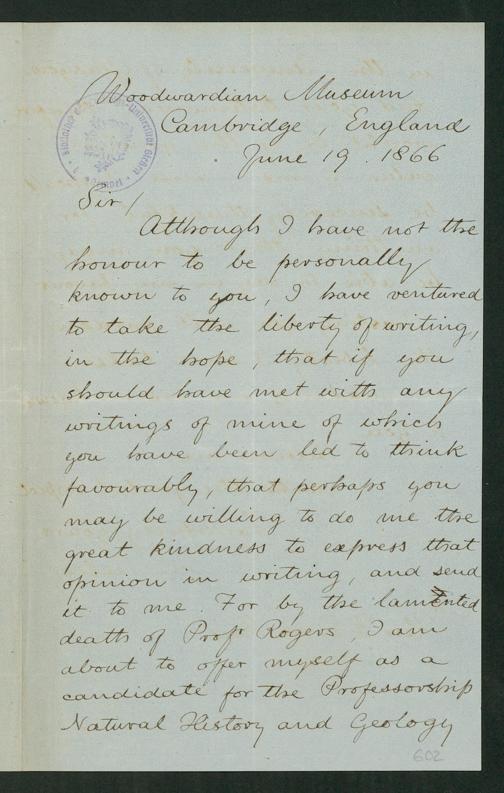 Woodwardian Museum
Cambridge, England
June 19. 1866
Sir/
Although I have not the
honour to be personally
known to you, I have ventured
to take the liberty of writing,
in the hope, that if you
should have met with any
writings of mine of which
you have been led to think
favourably, that perhaps you
may be willing to do me the
great kindness to express that
opinion in writing, and send
it to me. For by the lamented
death of Profr Rogers, I am
about to offer myself as a
candidate for the Professorship
Natural History and Geology
602